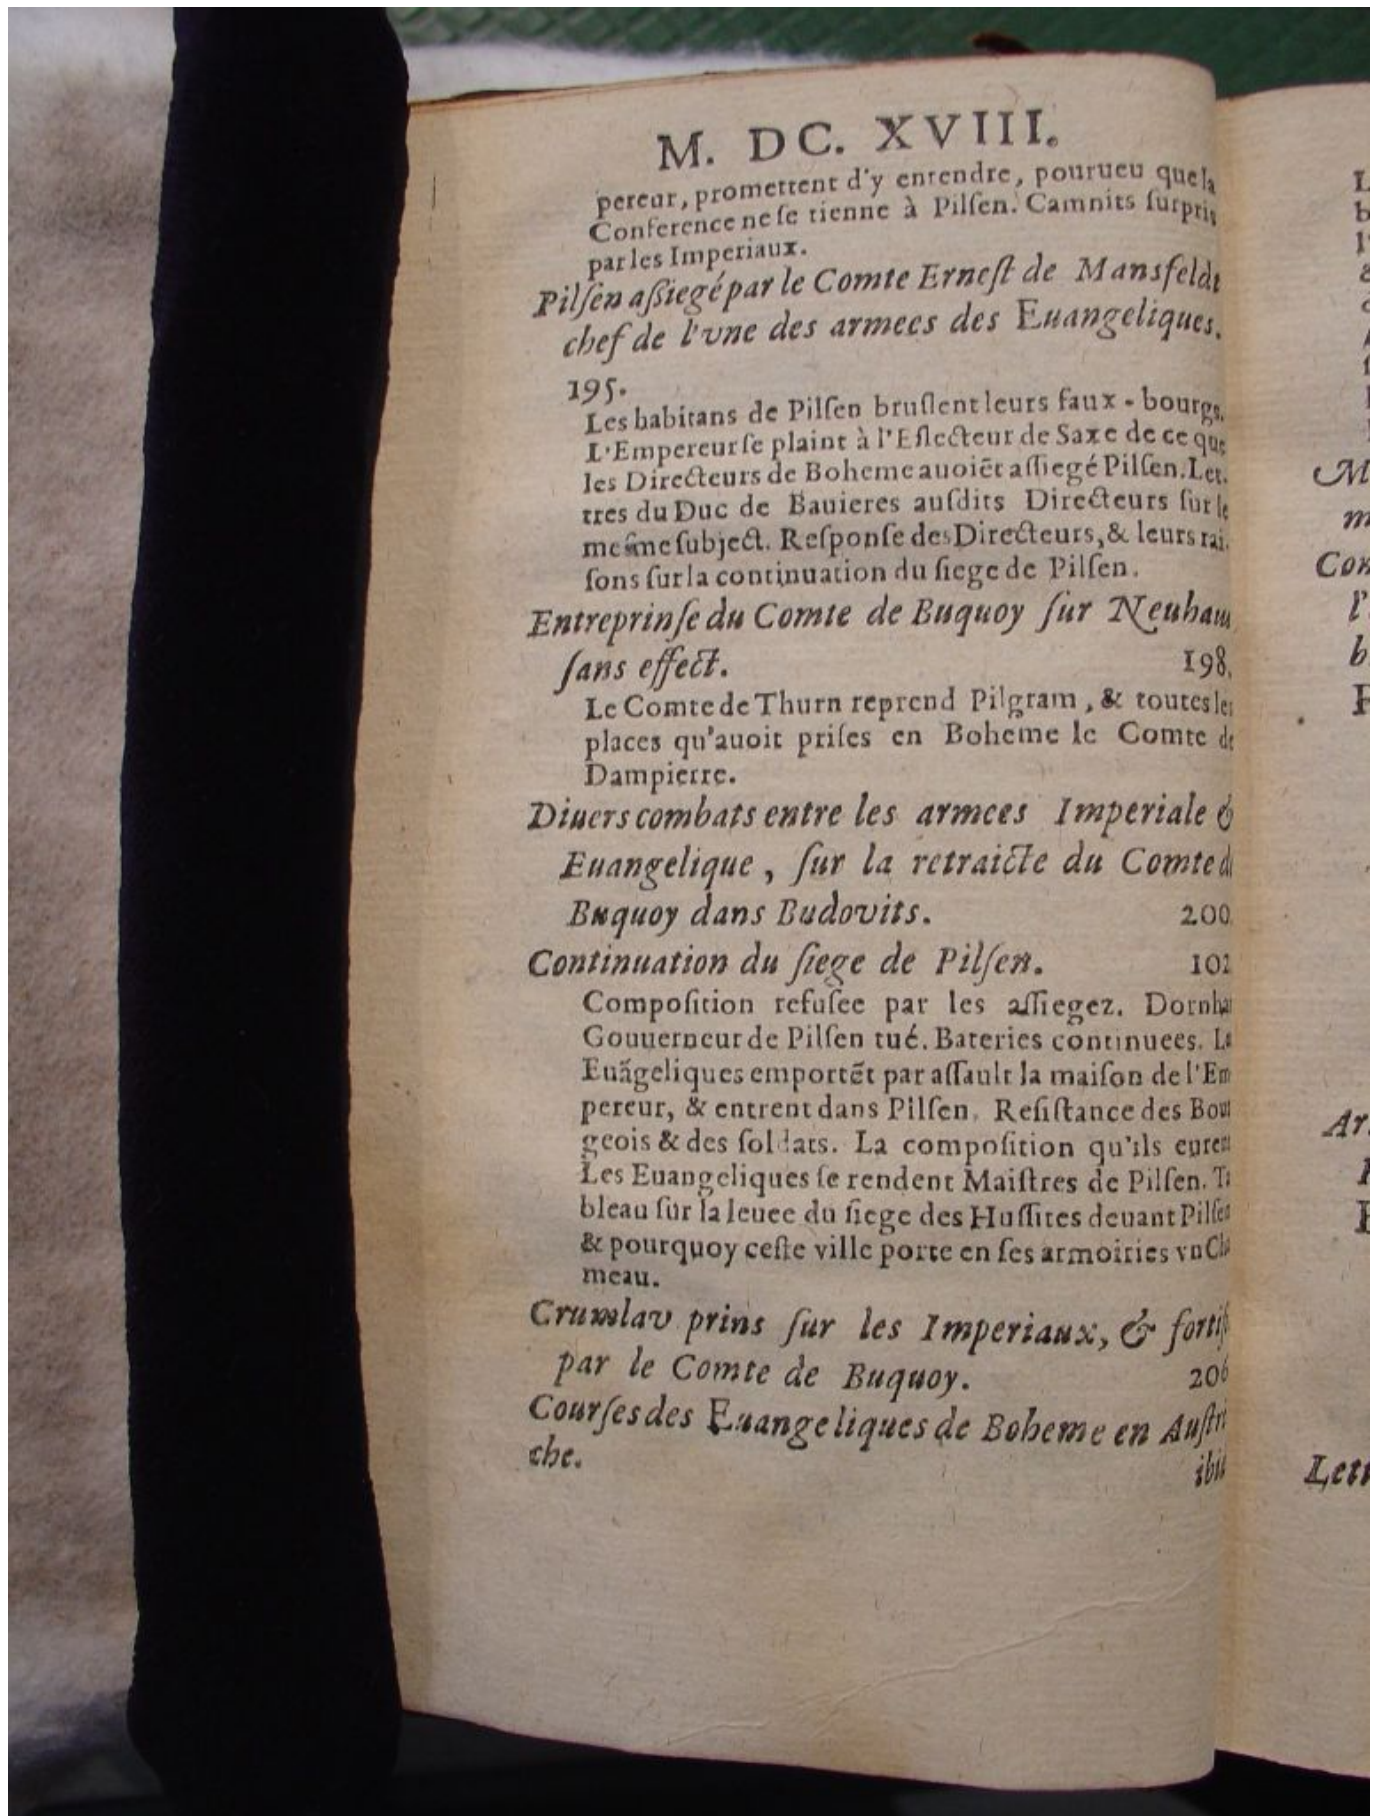 M. DC. XVIII.
pereur, promettent d'y entendre, pourueu que la
Conference ne ſe tienne à Pilſen. Camnits ſurpris
par les Imperiaux.
Pilſen aſſiegé par le Comte Ernest de Mansfeldt
chef de l'vne des armees des Euangeliques.
195.
Les habitans de Pilſen bruſlent leurs faux-bourgs.
L'Empereur ſe plaint à l'Eſlecteur de Saxe de ce que
les Directeurs de Boheme auoiēt aſſiegé Pilſen. Let-
tres du Duc de Bauieres auſdits Directeurs ſur le
meſme ſubject. Reſponſe des Directeurs, & leurs rai-
ſons ſur la continuation du ſiege de Pilſen.
Entreprinſe du Comte de Buquoy ſur Neuhaus
ſans effect. 198.
Le Comte de Thurn reprend Pilgram, & toutes les
places qu'auoit priſes en Boheme le Comte de
Dampierre.
Diuers combats entre les armees Imperiale &
Euangelique, ſur la retraicte du Comte de
Buquoy dans Budovits. 200
Continuation du ſiege de Pilſen. 102
Compoſition refuſee par les aſſiegez.
Gouuerneur de Pilſen tué. Bateries continuees. Les
Euāgeliques emportēt par aſſault la maiſon de l'Em
pereur, & entrent dans Pilſen. Reſiſtance des Bour
geois & des ſoldats. La compoſition qu'ils eurent
Les Euangeliques ſe rendent Maiſtres de Pilſen. Ta
bleau ſur la leuee du ſiege des Huſſites deuant Pilſen
& pourquoy ceſte ville porte en ſes armoiries vn Cha
meau.
Crumlav prins ſur les Imperiaux, &
par le Comte de Buquoy. 206
Courſes des Euangeliques de Boheme en Auſtri
che. ibid